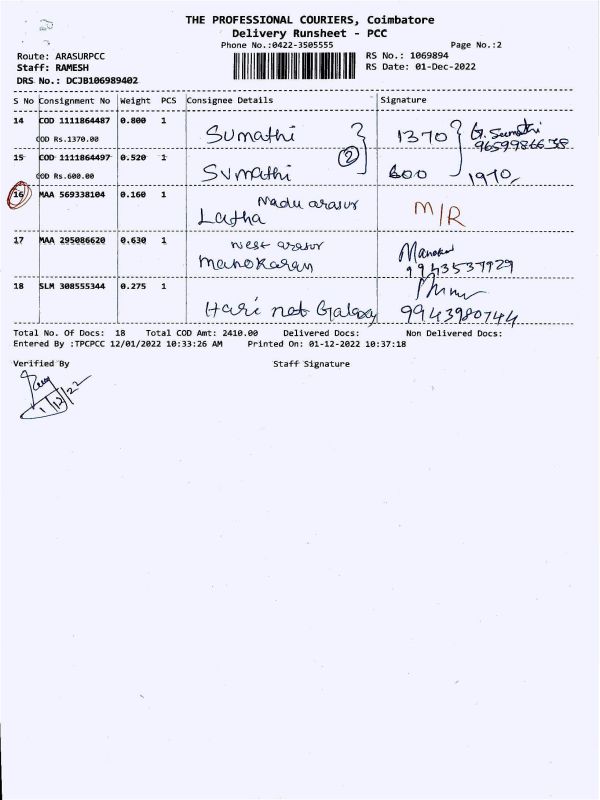 THE PROFESSIONAL COURIERS, Coimbatore
Delivery Runsheet - PCC
Phone No.:0422-3505555 Page No.:2
Route: ARASURPCC RS No.: 1069894
Staff: RAMESH RS Date: 01-Dec-2022
DRS No.: DCJB106989402
S No Consignment No Weight PCS Consignee Details Signature
14 COD 1111864487 0.800 1 Sumathi 1370 G. Sumathi
COD Rs.1370.00 9659986638
15 COD 1111864497 0.520 1 Sumathi 2 600 1970
COD Rs.600.00
16 MAA 569338104 0.160 1 Madu arasur
Latha M/R
17 MAA 295086620 0.630 1 west arasur Manokar
manokaran 9943537929
18 SLM 308555344 0.275 1
Hari net Galaxy 9943980744
Total No. Of Docs: 18 Total COD Amt: 2410.00 Delivered Docs: Non Delivered Docs:
Entered By :TPCPCC 12/01/2022 10:33:26 AM Printed On: 01-12-2022 10:37:18
Verified By Staff Signature
1/12/22